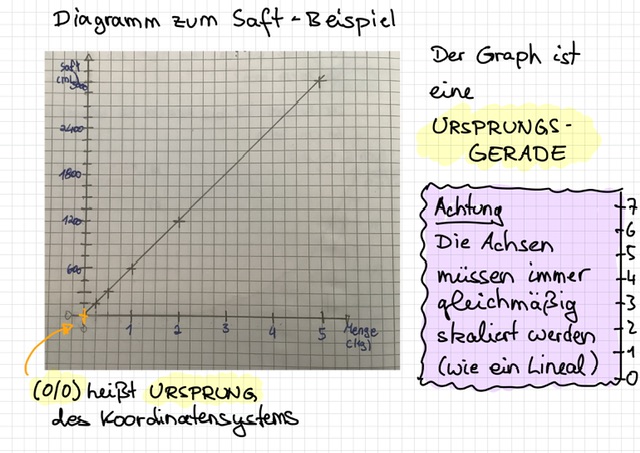 Diagramm zum Saft-Beispiel
Saft
(ml)
3000
2400
1800
1200
600
0
0 1 2 3 4 5 Menge
(kg)
(0/0) heißt URSPRUNG
des Koordinatensystems
Der Graph ist
eine
URSPRUNGS-
GERADE
Achtung
Die Achsen
müssen immer
gleichmäßig
skaliert werden
(wie ein Lineal)
7
6
5
4
3
2
1
0